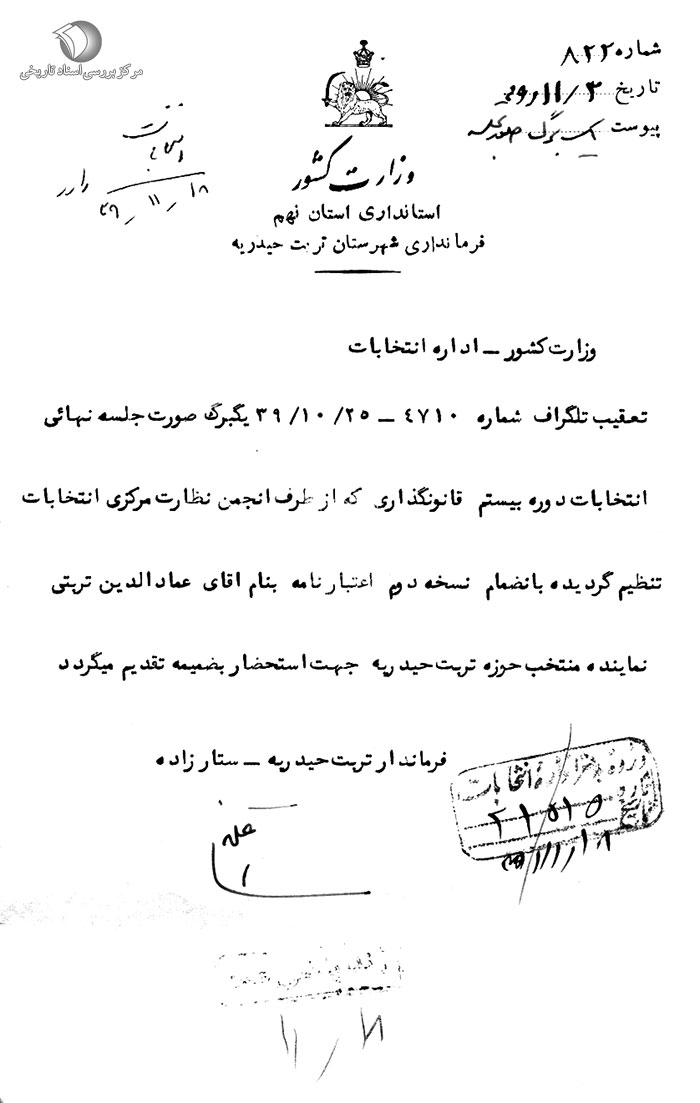 مرکز بررسی اسناد تاریخی
شماره ۸۲۲
تاریخ ۱۱/۲
پیوست یک برگ صورتجلسه
انتخابات
۳۹/۱۱/۱۸
وزارت کشور
استانداری استان نهم
فرمانداری شهرستان تربت حیدریه
وزارت کشور ــ اداره انتخابات
تعقیب تلگراف شماره ۴۷۱۰ ــ ۲۵/ ۱۰/ ۳۹ یکبرگ صورت جلسه نهائی
انتخابات دوره بیستم قانونگذاری که از طرف انجمن نظارت مرکزی انتخابات
تنظیم گردیده بانضمام نسخه دوم اعتبار نامه بنام اقای عماد الدین تربتی
نماینده منتخب حوزه تربت حیدریه جهت استحضار بضمیمه تقدیم میگردد
فرماندار تربت حیدریه ــ ستار زاده
ورود بدفتر اداره انتخابات
شماره ۲۱۵۱۵
تاریخ ۳۹/۱۱/۱۸